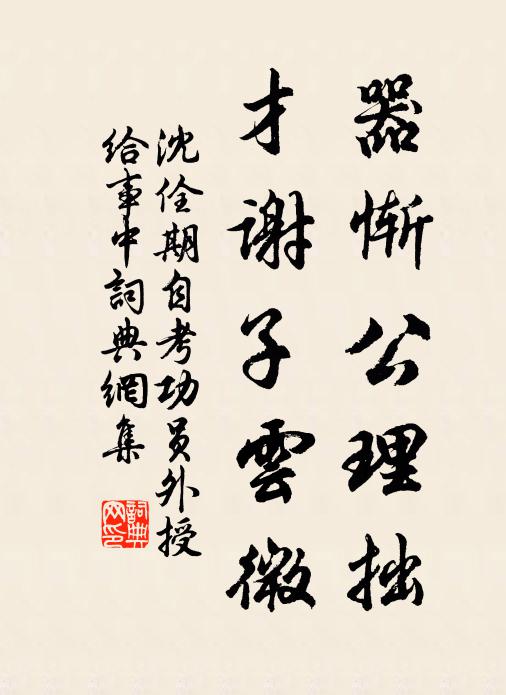 器慚公理拙
才謝子雲微
沈佺期自考功員外授
給事中詞典網集
詞典
网印